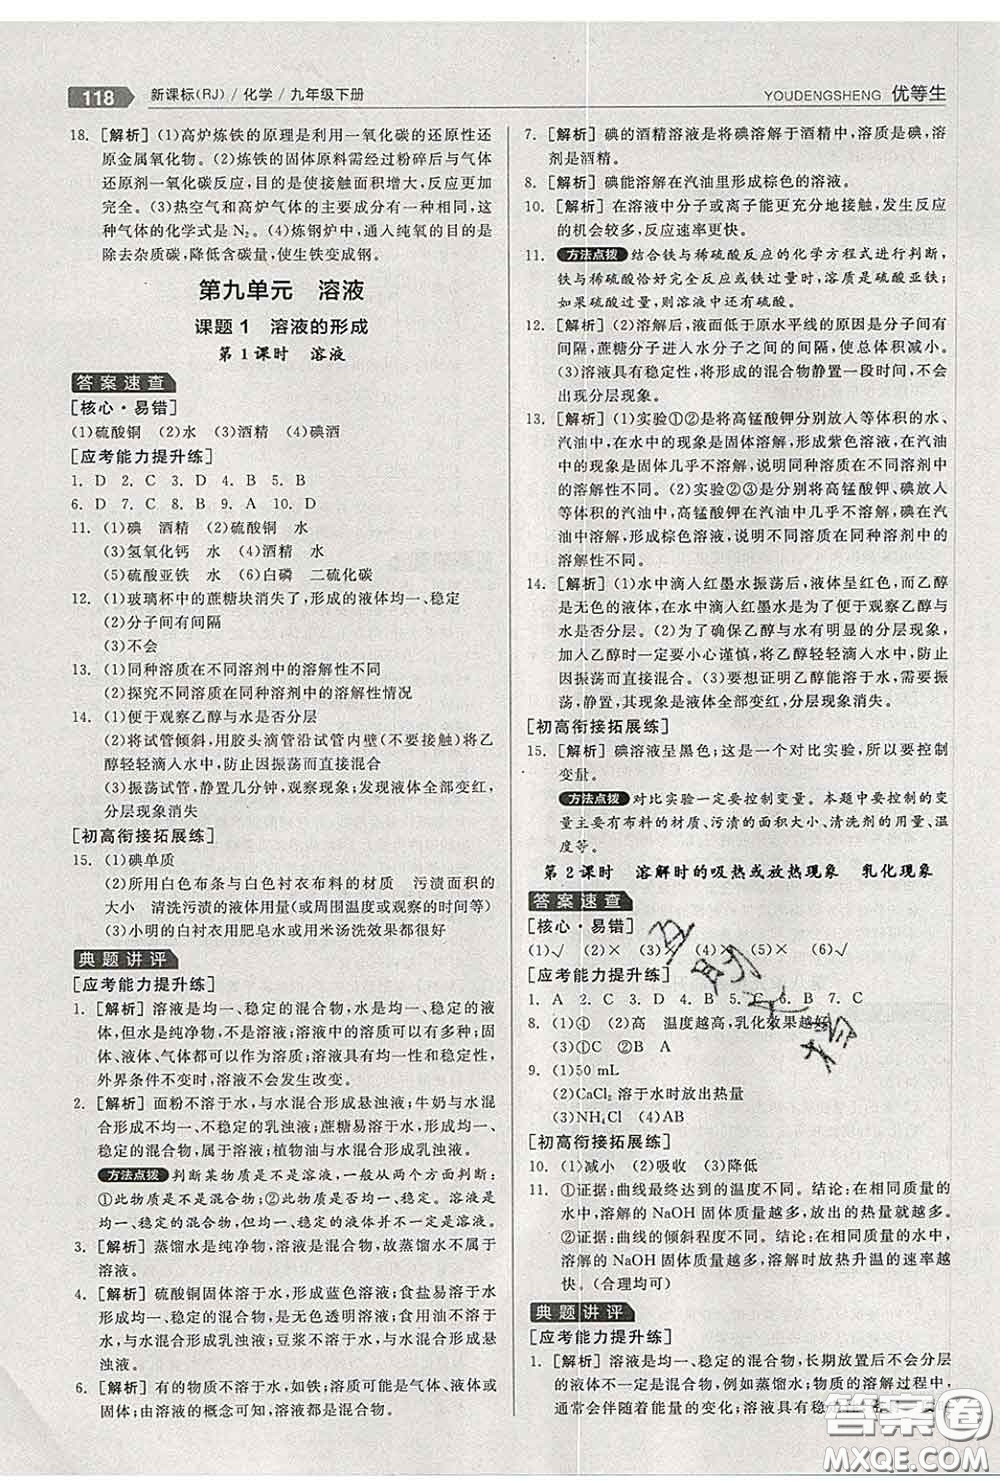 118 新课标(RJ)/化学/九年级下册
YOUDENGSHENG 优等生
18. [解析](1)高炉炼铁的原理是利用一氧化碳的还原性还
原金属氧化物。(2)炼铁的固体原料需经过粉碎后与气体
还原剂一氧化碳反应,目的是使接触面积增大,反应更加
完全。(3)热空气和高炉气体的主要成分有一种相同,
这种气体的化学式是N₂。(4)炼钢炉中,通入纯氧的目的
是除去杂质碳,降低含碳量,使生铁变成钢。
第九单元 溶液
课题1 溶液的形成
第1课时 溶液
答案速查
[核心·易错]
(1)硫酸铜 (2)水 (3)酒精 (4)碘酒
[应考能力提升练]
1. D 2. C 3. D 4. B 5. B
6. D 7. C 8. C 9. B 10. D
11. (1)碘 酒精 (2)硫酸铜 水
(3)氢氧化钙 水 (4)酒精 水
(5)硫酸亚铁 水 (6)白磷 二硫化碳
12. (1)玻璃杯中的蔗糖块消失了,形成的液体均一、稳定
(2)分子间有间隔
(3)不会
13. (1)同种溶质在不同溶剂中的溶解性不同
(2)探究不同溶质在同种溶剂中的溶解性情况
14. (1)便于观察乙醇与水是否分层
(2)将试管倾斜,用胶头滴管沿试管内壁(不要接触)将乙
醇轻轻滴入水中,防止因振荡而直接混合
(3)振荡试管,静置几分钟,观察现象,液体全部变红,
分层现象消失
[初高衔接拓展练]
15. (1)碘单质
(2)所用白色布条与白色衬衣布料的材质 污渍面积的
大小 清洗污渍的液体用量(或两次观察的时间等)
(3)小明的白衬衣用肥皂水或用米汤洗效果都很好
典题讲评
[应考能力提升练]
1. [解析] 溶液是均一、稳定的混合物,水是均一、稳定的液
体,但水是纯净物,不是溶液;溶液中的溶质可以有多种;固
体、液体、气体都可以作溶质;溶液具有均一性和稳定性,
外界条件不变时,溶液不会发生改变。
2. [解析] 面粉不溶于水,与水混合形成悬浊液;牛奶与水混
合形成不均一、不稳定的乳浊液;蔗糖易溶于水,形成均一、
稳定的混合物,属于溶液;植物油与水混合形成乳浊液。
方法点拨 判断某物质是不是溶液,一般从两个方面判断:
①此物质是不是混合物;②此物质是否均一、稳定。溶液是
均一、稳定的混合物。
3. [解析] 蒸馏水是纯净物,溶液是混合物,故蒸馏水不属于
溶液。
4. [解析] 硫酸铜固体溶于水,形成蓝色溶液;食盐易溶于水
形成均一、稳定的混合物,是无色透明溶液;食用油不溶于水,
与水混合形成乳浊液;豆浆不溶于水,与水混合形成悬
浊液。
6. [解析] 有的物质不溶于水,如铁;溶质可能是气体、液体或
固体;由溶液的概念可知,溶液是混合物。
7. [解析] 碘的酒精溶液是将碘溶解于酒精中,溶质是碘,溶
剂是酒精。
8. [解析] 碘能溶解在汽油里形成棕色的溶液。
10. [解析] 在溶液中分子或离子能更充分地接触,发生反应
的机会较多,反应速率更快。
11. 方法点拨 结合铁与稀硫酸反应的化学方程式进行判断,
铁与稀硫酸恰好完全反应或铁过量时,溶质是硫酸亚铁;
如果硫酸过量,则溶液中还有硫酸。
12. [解析](2)溶解后,液面低于原水平线的原因是分子间有
间隔,蔗糖分子进入水分子之间的间隔,使总体积减小。
(3)溶液具有稳定性,将形成的混合物静置一段时间,不会
出现分层现象。
13. [解析](1)实验①②是将高锰酸钾分别放入等体积的水、
汽油中,在水中的现象是固体溶解,形成紫色溶液,在汽油
中的现象是固体几乎不溶解,说明同种溶质在不同溶剂中
的溶解性不同。(2)实验②③是将高锰酸钾、碘分别放入
等体积的汽油中,高锰酸钾在汽油中几乎不溶解,碘在汽
油中溶解,形成棕色溶液,说明不同溶质在同种溶剂中的
溶解性不同。
14. [解析](1)水中滴入红墨水振荡后,液体呈红色,而乙醇
是无色的液体,在水中滴入红墨水是为了便于观察乙醇与
水是否分层。(2)为了确保乙醇与水有明显的分层现象,
加入乙醇时一定要小心谨慎,将乙醇轻轻滴入水中,防止
因振荡而直接混合。(3)要想证明乙醇能溶于水,可进行振
荡,静置,其现象是液体全部变红,分层现象消失。
[初高衔接拓展练]
15. [解析] 碘溶液呈黑色;这是一个对比实验,所以要控制
变量。
方法点拨 对比实验一定要控制变量。本题中要控制的变
量主要有布料的材质、污渍的面积大小、清洗剂的用量、温
度等。
第2课时 溶解时的吸热或放热现象 乳化现象
答案速查
[核心·易错]
(1)√ (2)× (3)× (4)× (5)× (6)√
[应考能力提升练]
1. A 2. C 3. D 4. B 5. C 6. B 7. C
8. (1)④ (2)高 温度越高,乳化效果越好
(3)①C ②B A
9. (1)50 mL
(2)CaCl₂ 溶于水时放出热量
(3)NH₄Cl (4)AB
[初高衔接拓展练]
10. (1)减小 (2)吸收 (3)降低
11. ①证据:曲线最终达到的温度不同。结论:在相同质量的
水中,溶解的NaOH固体质量越多,放出的热量越多。
②证据:曲线的倾斜程度不同。结论:在相同质量的水中,
溶解的NaOH固体质量越多,溶解时放热升温的速率越
快。(合理均可)
典题讲评
[应考能力提升练]
1. [解析] 溶液是均一、稳定的混合物,长期放置后不会分层
的液体不一定是混合物,例如蒸馏水;物质的溶解过程中,
通常会伴随着能量的变化;溶液
答案圈
MXQE.COM